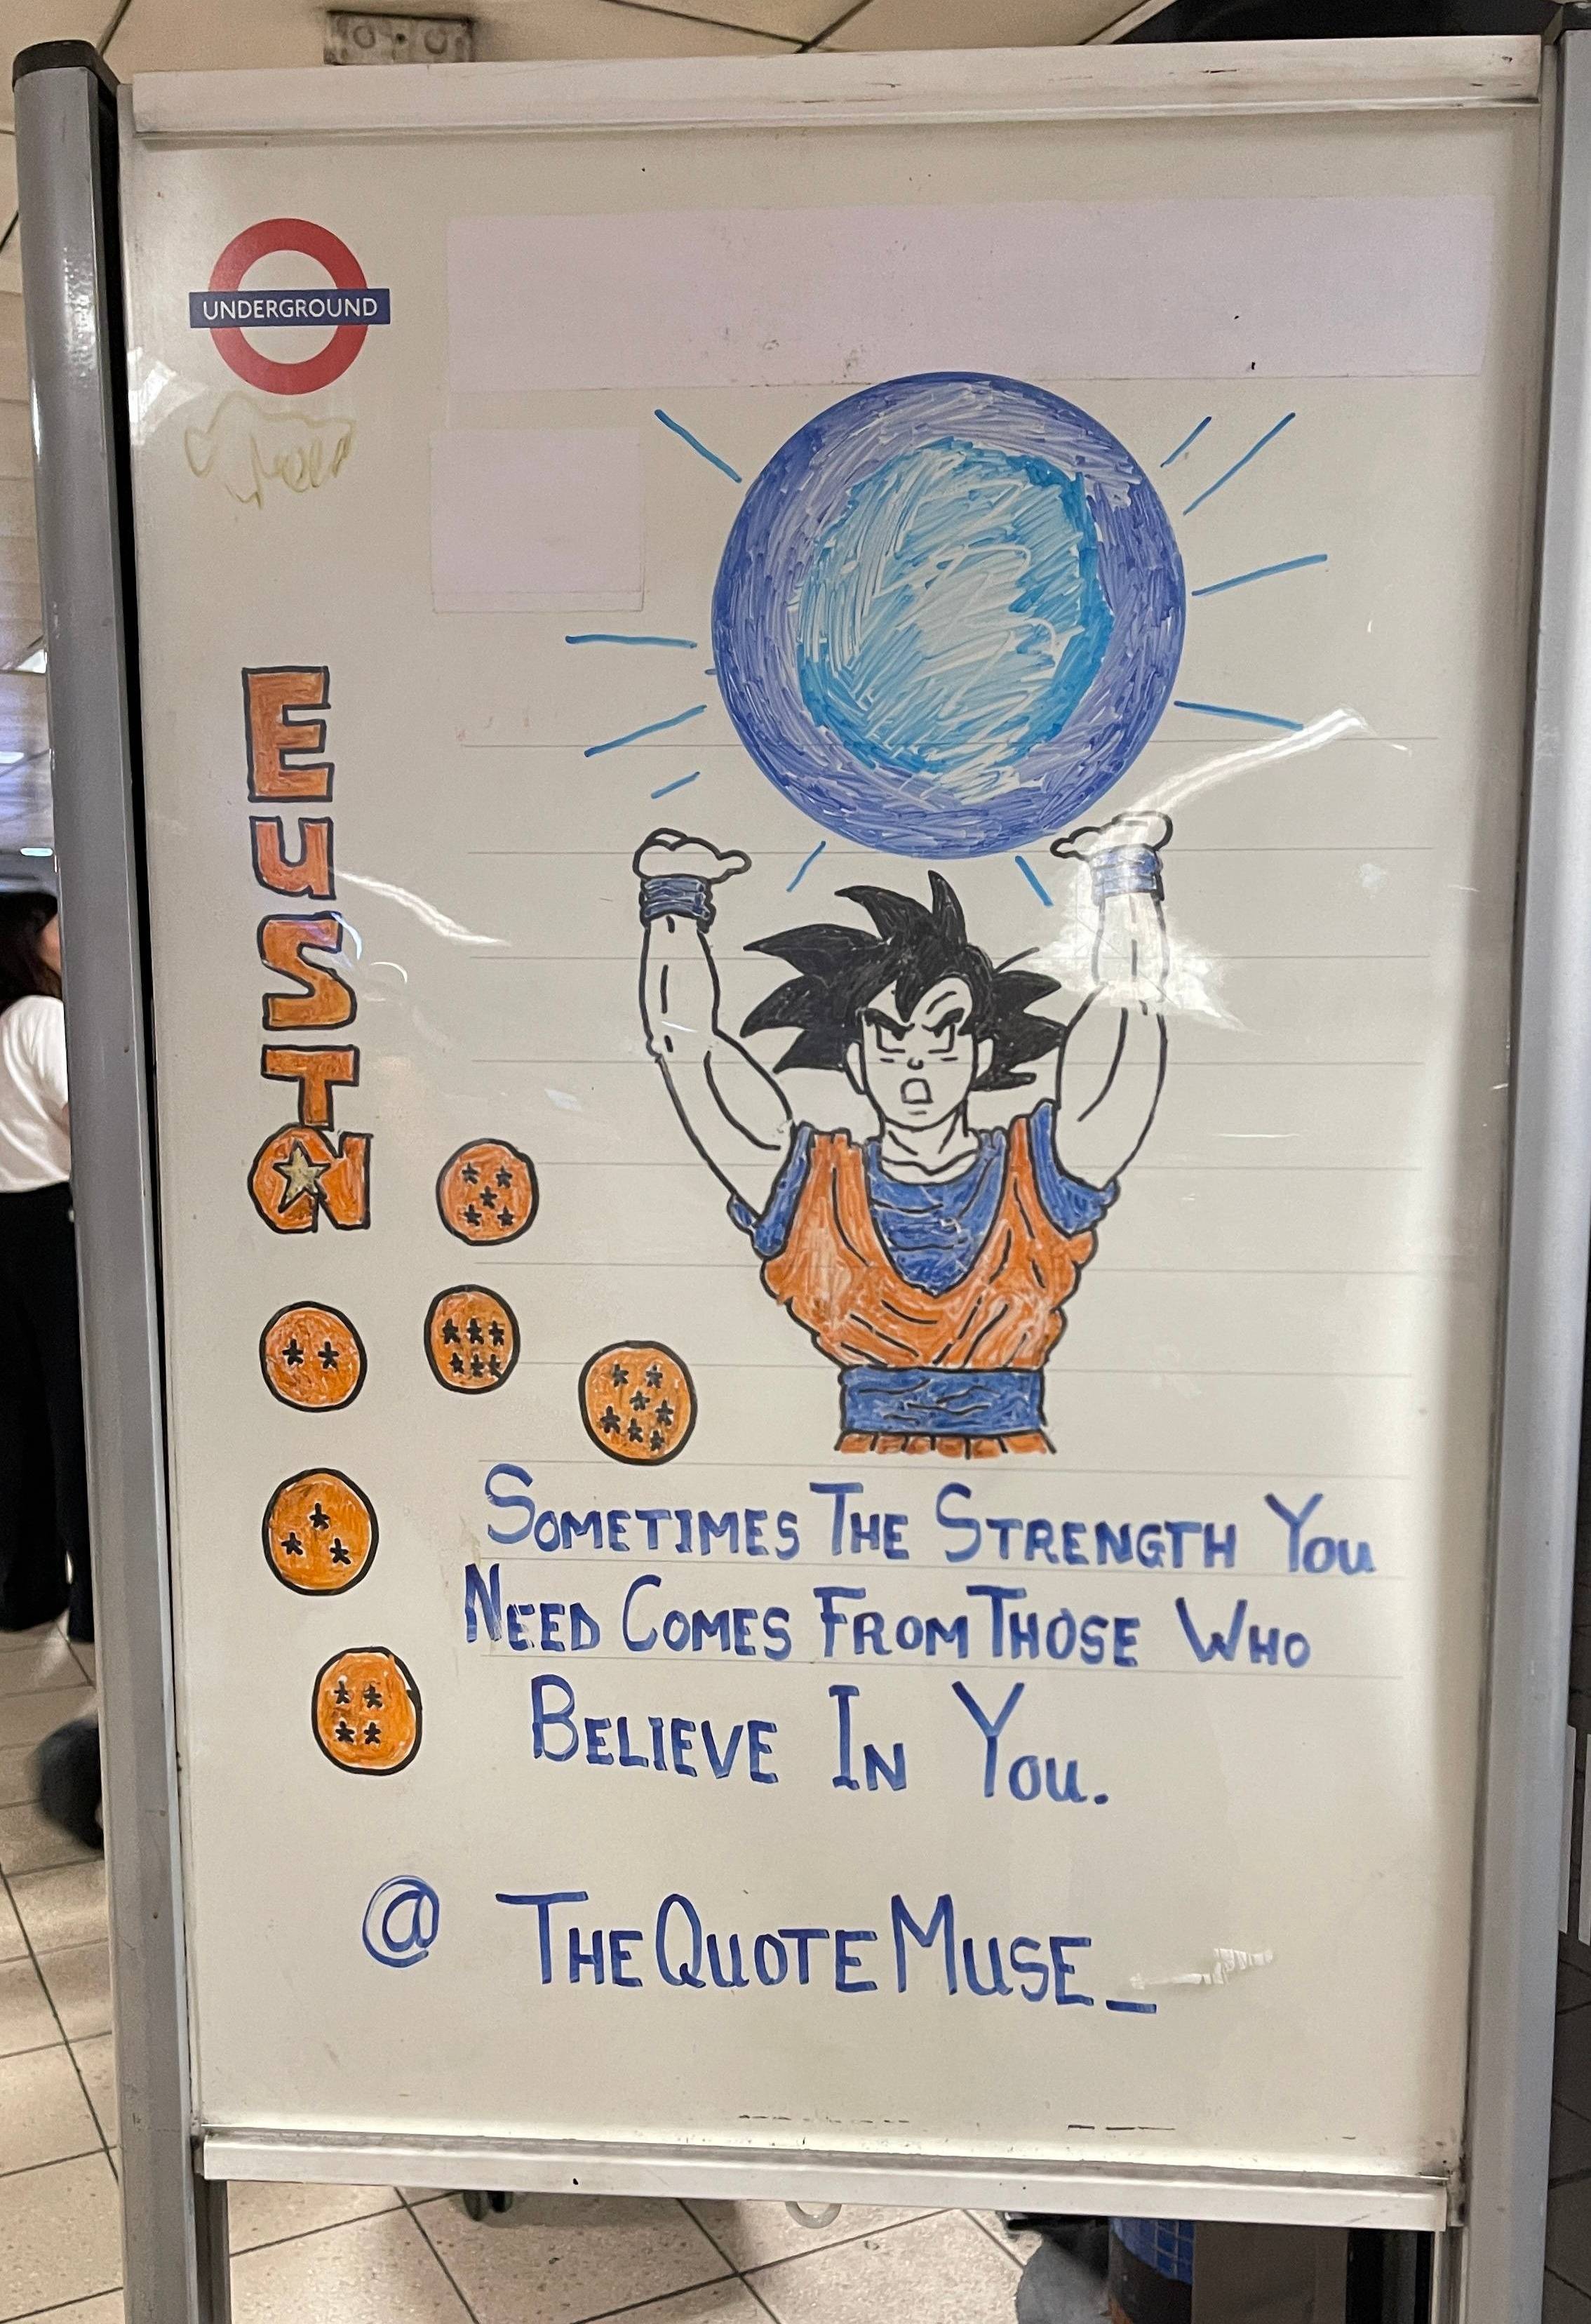 UNDERGROUND
EUSTON
SOMETIMES THE STRENGTH YOU
NEED COMES FROM THOSE WHO
BELIEVE IN YOU.
@ THEQUOTEMUSE_